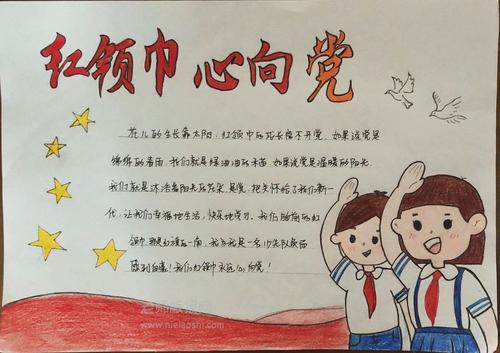 红领巾 心向党
花儿的生长靠太阳，红领巾的成长离不开党。如果说党是
绵绵的春雨，我们就是绿油油的禾苗。如果说党是温暖的阳光，
我们就是沐浴着阳光的花朵。是党，把关怀给了我们新一
代，让我们幸福地生活，快乐地学习。我们胸前的红
领巾 我为我是一名少先队员而
感到自豪！我们红领巾永远心向党！
www.nielaoshi.com